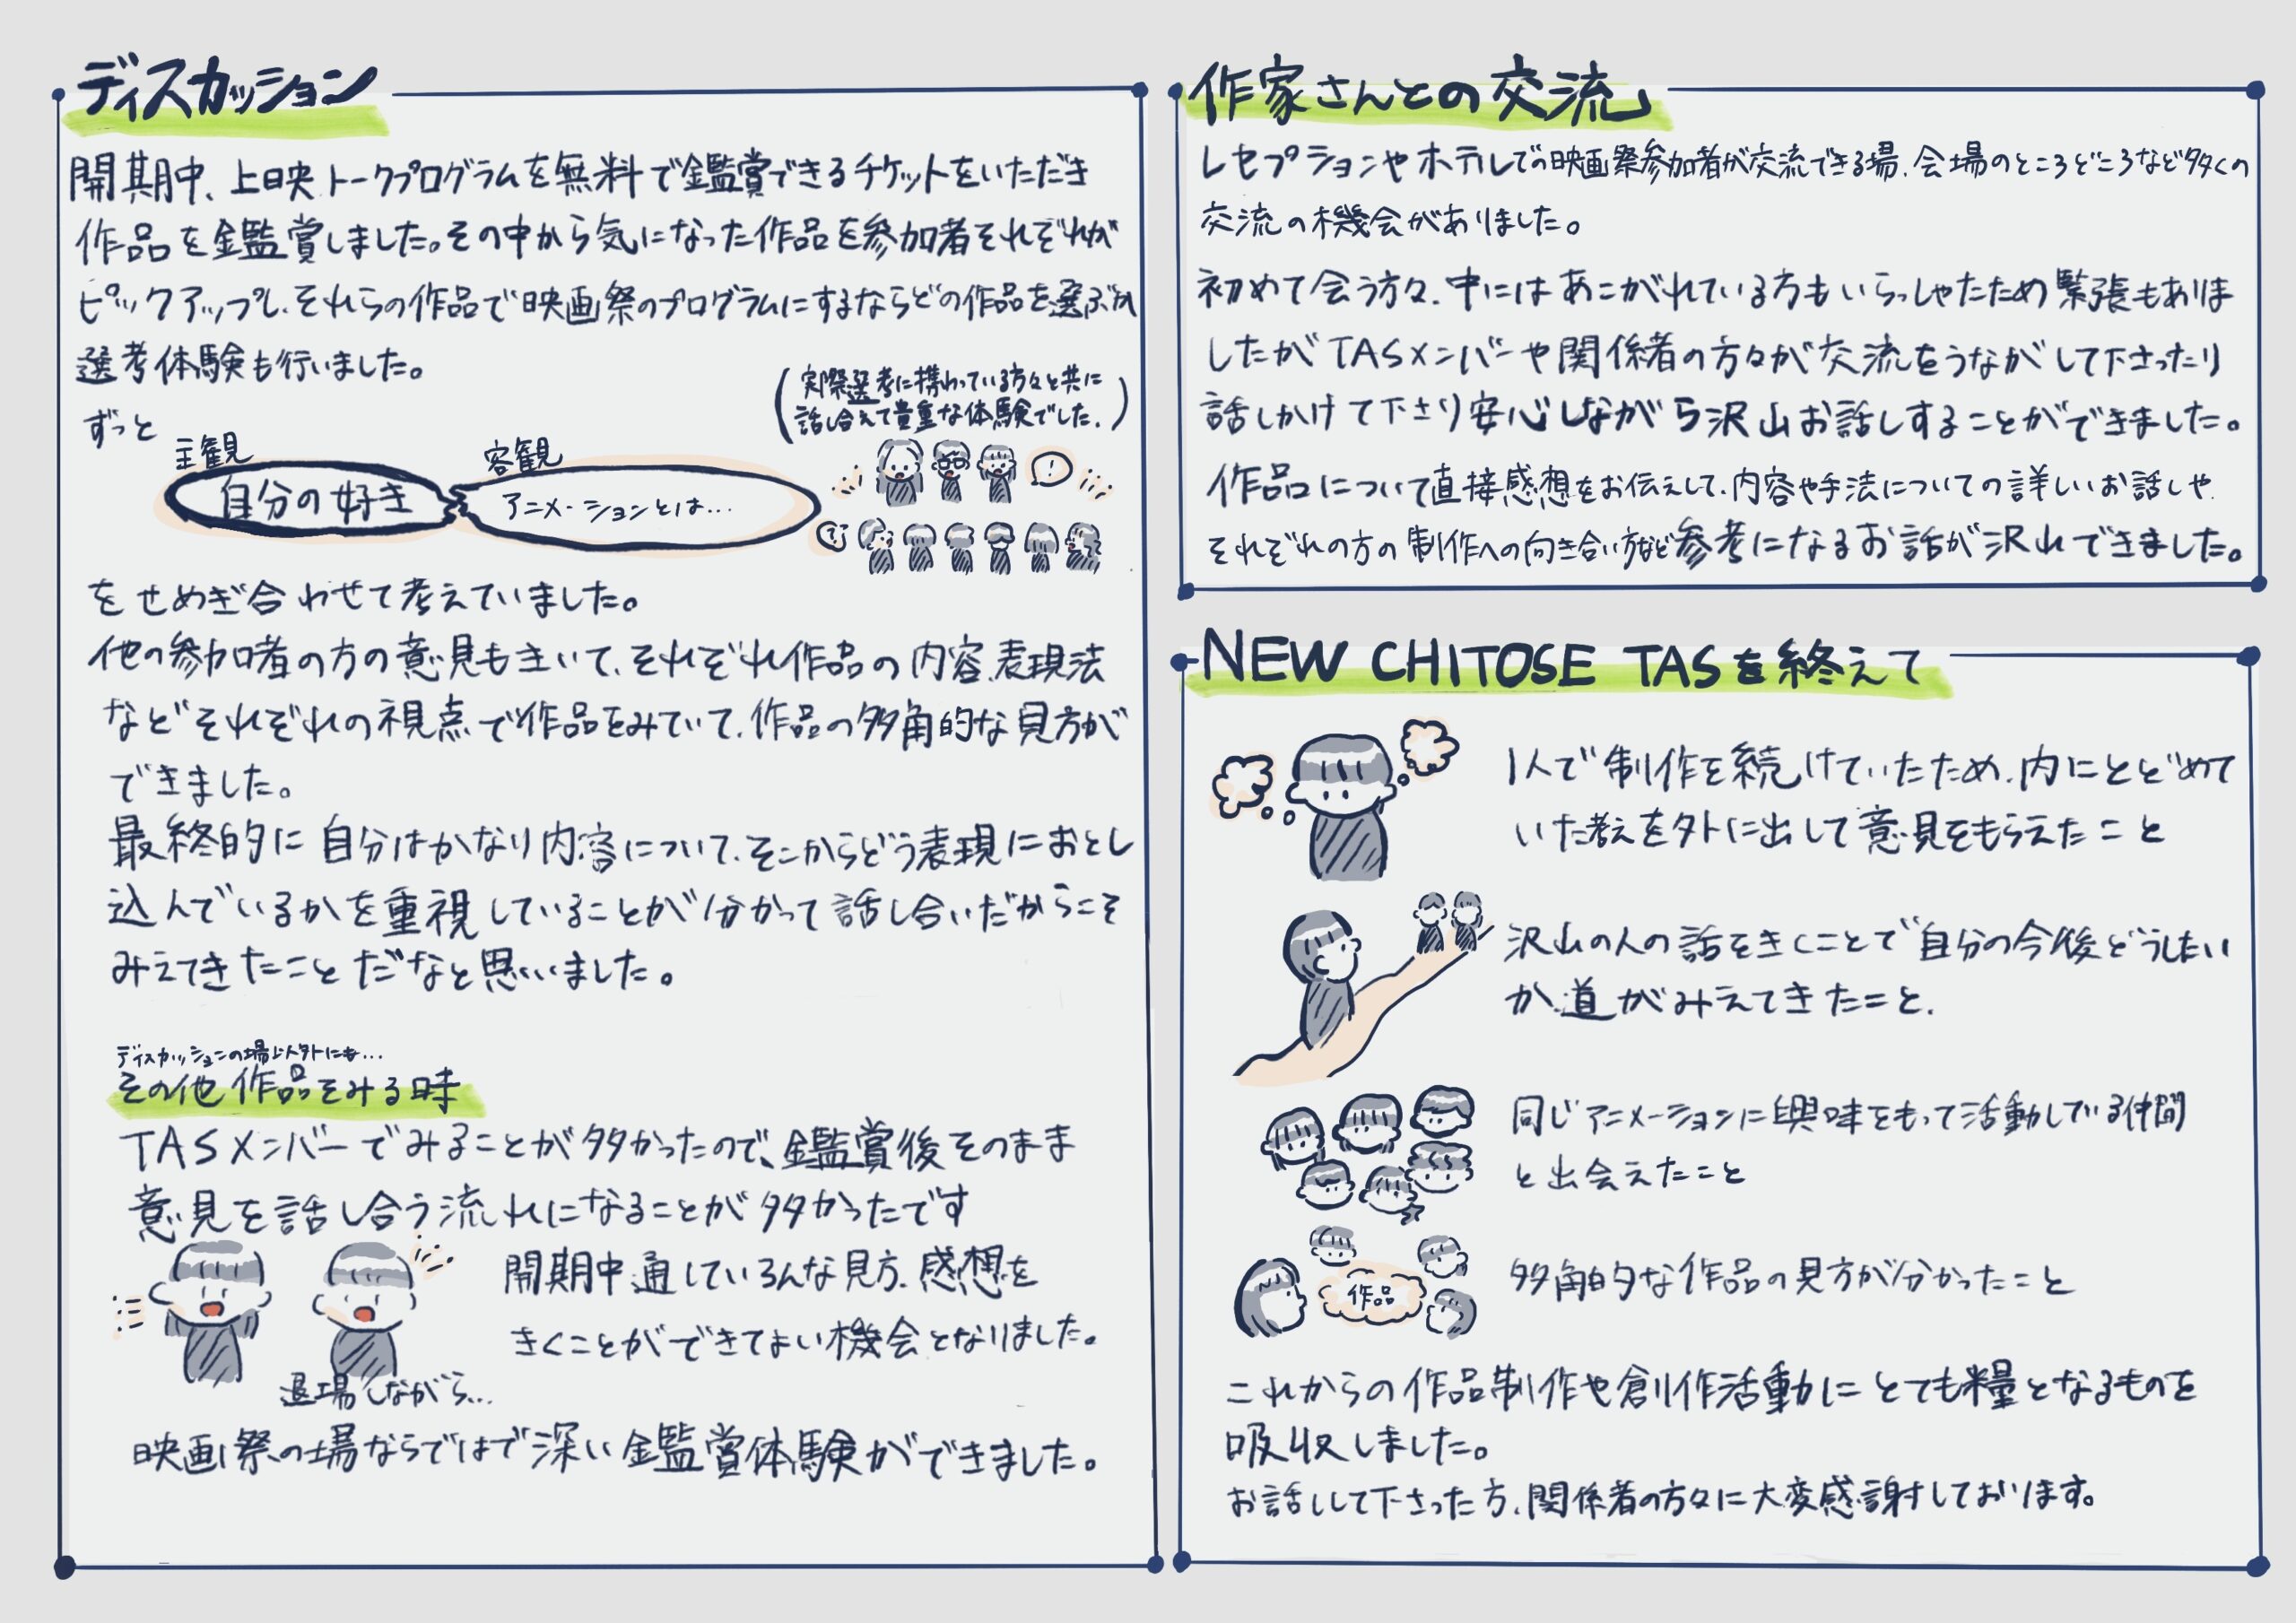 ディスカッション
開期中、上映、トークプログラムを無料で鑑賞できるチケットをいただき
作品を鑑賞しました。その中から気になった作品を参加者それぞれが
ピックアップし、それらの作品で映画祭のプログラムにするならどの作品を選ぶか
選考体験も行いました。
(実際選考に携わっている方々と共に
話し合えて貴重な体験でした。)
ずっと
主観
客観
自分の好き
アニメーションとは...
!
??
をせめぎ合わせて考えていました。
他の参加者の方の意見もきいて、それぞれ作品の内容、表現法
などそれぞれの視点で作品をみていて、作品の多角的な見方が
できました。
最終的に自分はかなり内容について、そこからどう表現におとし
込んでいるかを重視していることが分かって話し合いだからこそ
みえてきたことだなと思いました。
ディスカッションの場以外にも...
その他 作品をみる時
TASメンバーでみることが多かったので、鑑賞後そのまま
意見を話し合う流れになることが多かったです
開期中通していろんな見方、感想を
きくことができてよい機会となりました。
退場しながら...
映画祭の場ならではで深い鑑賞体験ができました。
作家さんとの交流
レセプションやホテルでの映画祭参加者が交流できる場、会場のところどころなど多くの
交流の機会がありました。
初めて会う方々、中にはあこがれている方もいらっしゃたため緊張もありま
したがTASメンバーや関係者の方々が交流をうながして下さったり
話しかけて下さり安心しながら沢山お話しすることができました。
作品について直接感想をお伝えして、内容や手法についての詳しいお話しや、
それぞれの方の制作への向き合い方など参考になるお話が沢れできました。
NEW CHITOSE TASを終えて
1人で制作を続けていたため、内にとどめて
いた考えを外に出して意見をもらえたこと
沢山の人の話をきくことで自分の今後どうしたい
か、道がみえてきたこと、
同じアニメーションに興味をもって活動している仲間
と出会えたこと
作品
多角的な作品の見方が分かったこと
これからの作品制作や創作活動にとても糧となるものを
吸収しました。
お話しして下さった方、関係者の方々に大変感謝しております。